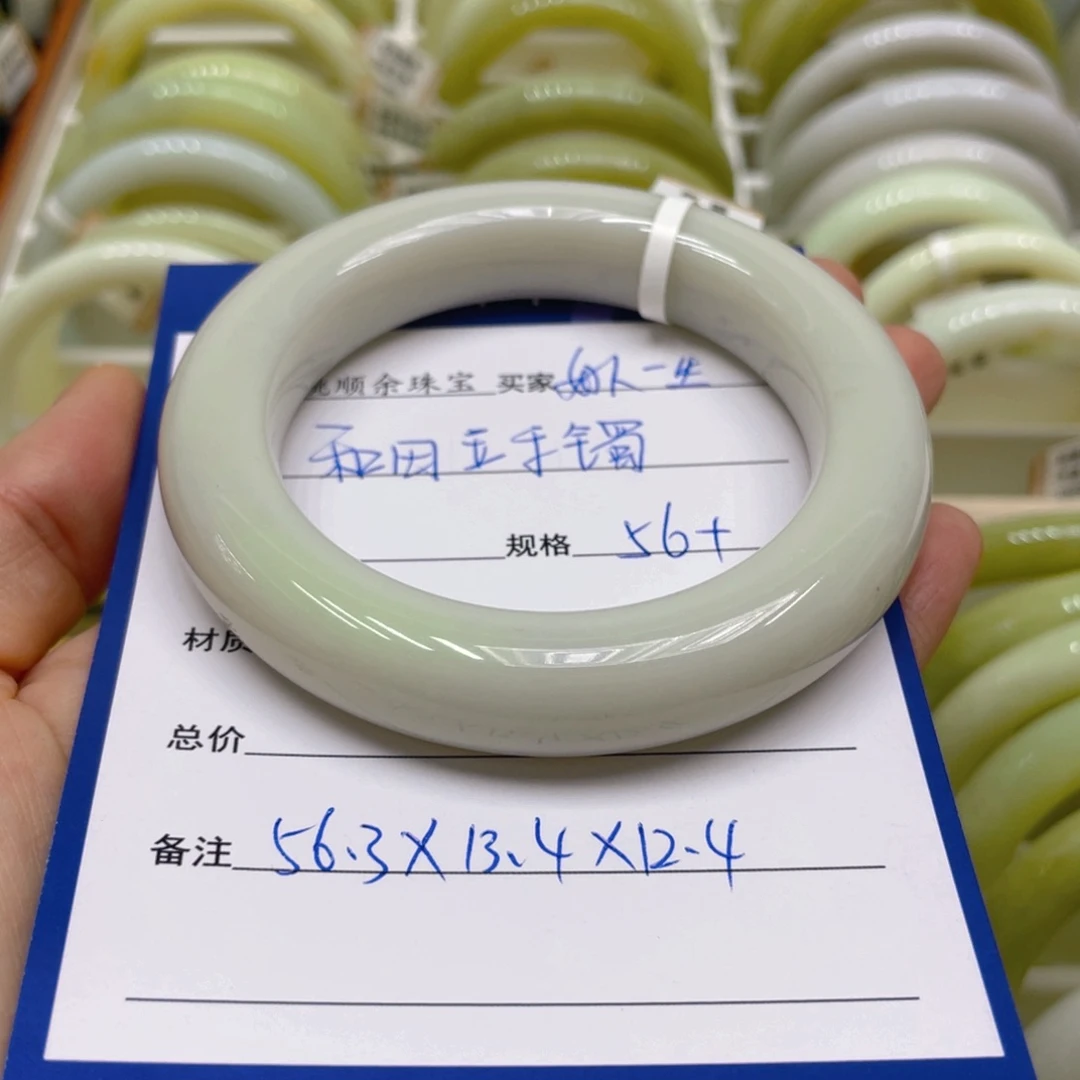 顺余珠宝 买家 如人一生
和田玉手镯
规格 56+
材质
总价
备注 56.3X13.4X12.4